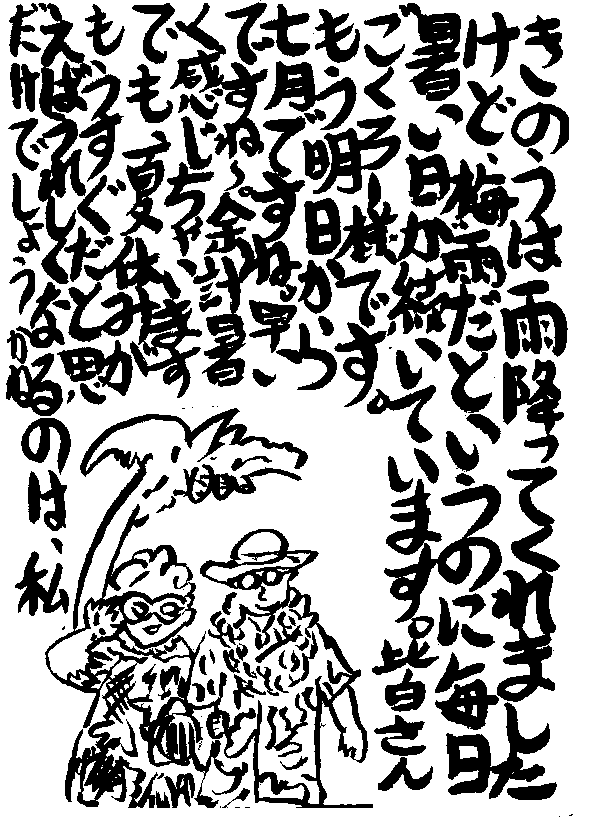 きのうは雨降ってくれました
けど、梅雨だというのに毎日
暑い日が続いています。皆さん
ごくろー様です。
もう明日から
七月ですね。早い
ですね〜。余計暑
く感じちゃいます
でも、夏休みが
もうすぐだと思
えばうれしくなるのは、私
だけでしょうかね